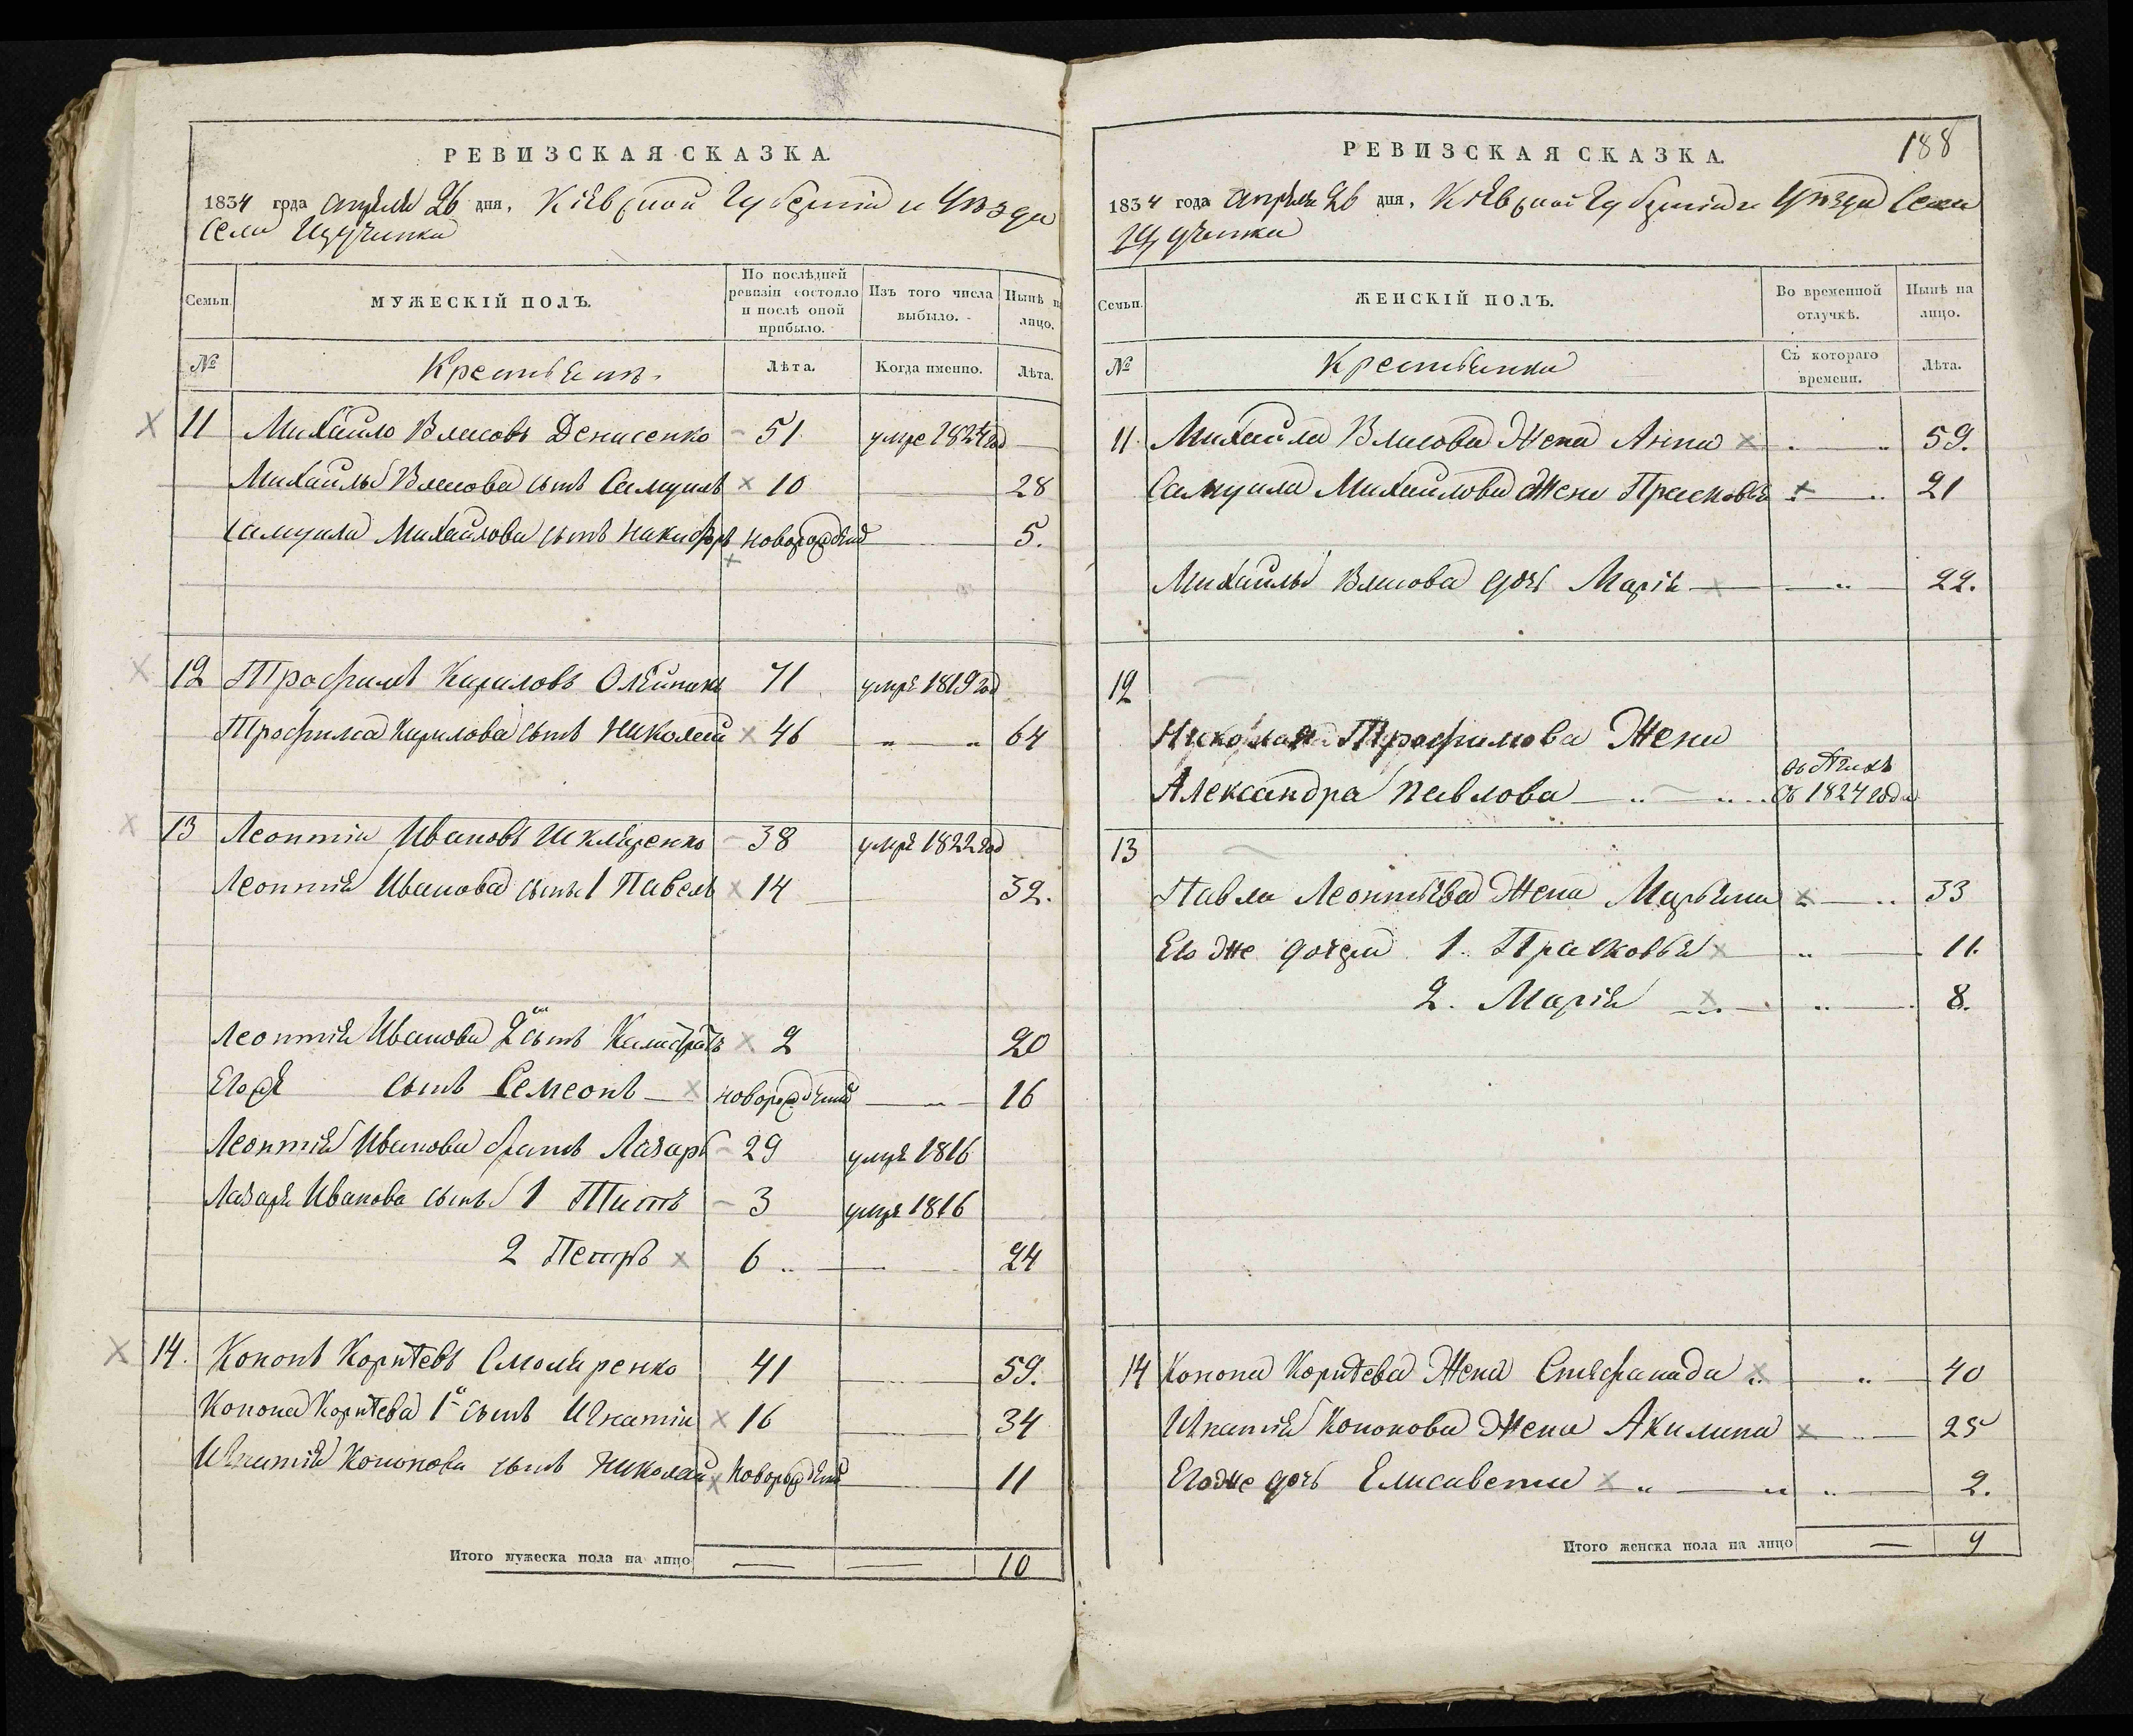 РЕВИЗСКАЯ СКАЗКА.
1834 года апреля 26 дня, Кіевской Губерніи и Уѣзда
Села Щучинки
Семьи.
МУЖЕСКІЙ ПОЛЪ.
По послѣдней ревизіи состояло и послѣ оной прибыло.
Изъ того числа выбыло.
Нынѣ на лицо.
№
Крестьянъ.
Лѣта.
Когда именно.
Лѣта.
11 Михайло Власовъ Денисенко 51 умре 1824 год
Михайлы Власова сынъ Самуилъ 10 28
Самуила Михайлова сынъ Никифоръ новорожденный 5.
12 Трофимъ Кириловъ Олейникъ 71 умре 1819 год
Трофима Кирилова сынъ Николай 46 64
13 Леонтій Ивановъ Шкляренко 38 умре 1822 год
Леонтія Иванова сынъ 1 Павелъ 14 32.
Леонтія Иванова 2 сынъ Калистратъ 2 20
Его же сынъ Семеонъ новорожденный 16
Леонтія Иванова братъ Лазарь 29 умре 1816
Лазаря Иванова сынъ 1 Титъ 3 умре 1816
2 Петръ 6 24
14. Кононъ Корнѣевъ Смоляренко 41 59.
Конона Корнѣева 1й сынъ Игнатій 16 34
Игнатія Кононова сынъ Николай новорожденный 11
Итого мужеска пола на лицо 10
188
РЕВИЗСКАЯ СКАЗКА.
1834 года апреля 26 дня, Кіевской Губерніи и Уѣзда Села
Щучинки
Семьи.
ЖЕНСКІЙ ПОЛЪ.
Во временной отлучкѣ.
Нынѣ на лицо.
№
Крестьянки
Съ котораго времени.
Лѣта.
11. Михайла Власова Жена Анна 59.
Самуила Михайлова Жена Прасковья 21
Михайлы Власова дочь Марія 22.
12
Николая Трофимова Жена
Александра Павлова съ 1824 года
13
Павла Леонтьева Жена Марьяна 33
Его же дочери 1. Прасковья 11.
2. Марія 8.
14 Конона Корнѣева Жена Стефанида 40
Игнатія Кононова Жена Акилина 25
Его же дочь Елисавета 2.
Итого женска пола на лицо 9